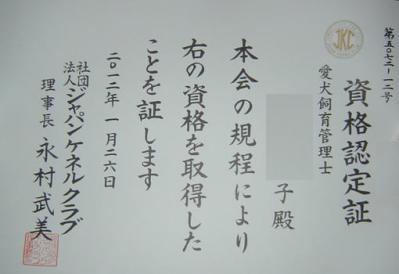 第五〇七二ー一二号
JKC
資格認定証
愛犬飼育管理士
子殿
本会の規程により
右の資格を取得した
ことを証します
二〇一二年一月二六日
社団法人ジャパンケネルクラブ
理事長永村武美